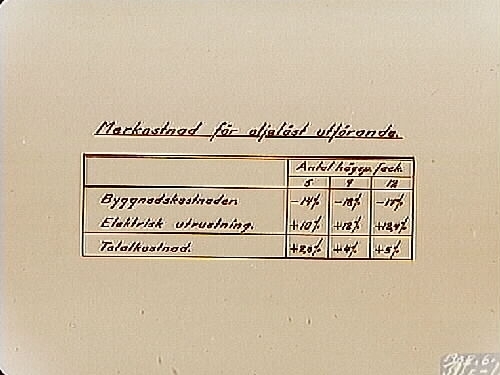 Merkostnad för oljelöst utförande.
Antal högsp. fack.
5 9 12
Byggnadskostnaden -14% -18%
Elektrisk utrustning. +10% +12%
Totalkostnad. +4% +5%